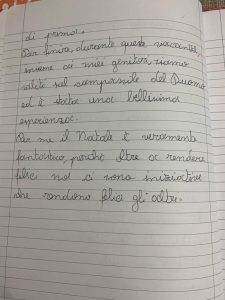 di prima.
Per finire, durante queste vacanze,
insieme ai miei genitori siamo
saliti sul campanile del Duomo
ed è stata una bellissima
esperienza.
Per me il Natale è veramente
fantastico, perché oltre a rendere
felici noi ci sono iniziative
che rendono felici gli altri.